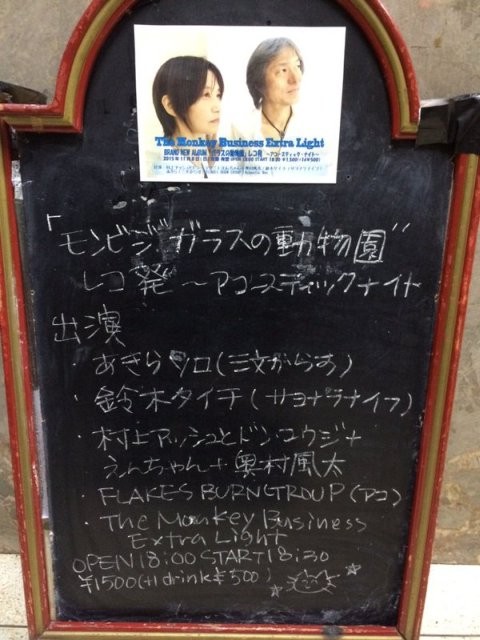 The Monkey Business Extra Light
BRAND NEW ALBUM 「ガラスの動物園」レコ発 〜アコースティック・ナイト〜
「モンビジ"ガラスの動物園"
レコ発〜アコースティックナイト
出演
・あきらソロ(三文がらす)
・鈴木タイチ(サヨナラナイフ)
・村上アッシュとドン・ユウジ+
えんちゃん+奥村風太
・FLAKES BURNGTROUP(アコ)
・The Monkey Business
Extra Light
OPEN 18:00 START 18:30
¥1500(+1drink¥500)